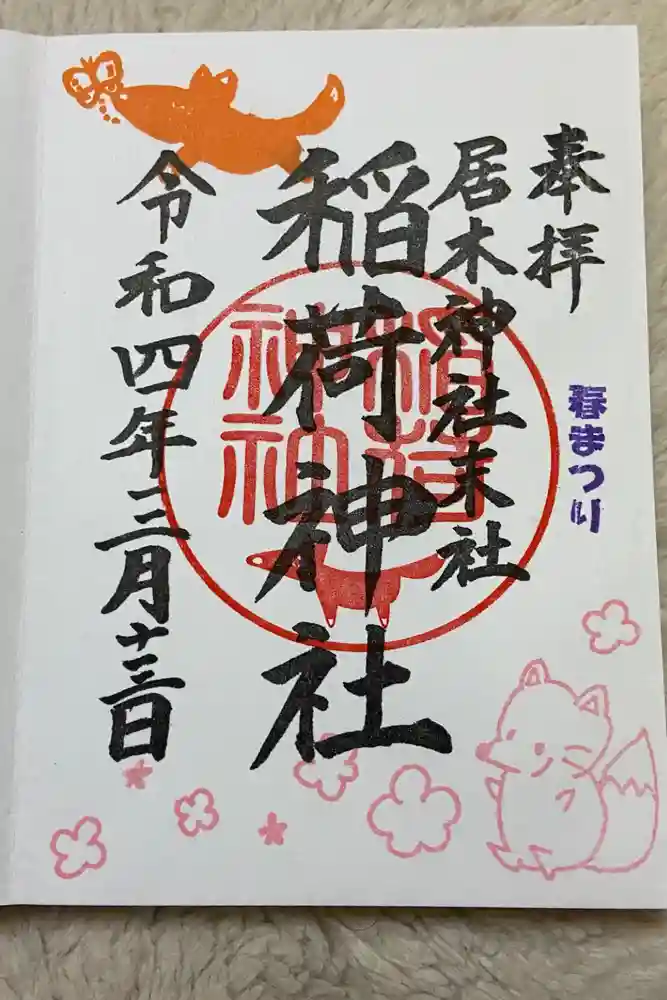 奉拝
春まつり
居木神社末社
稲荷神社
稲荷神社
令和四年三月十三日